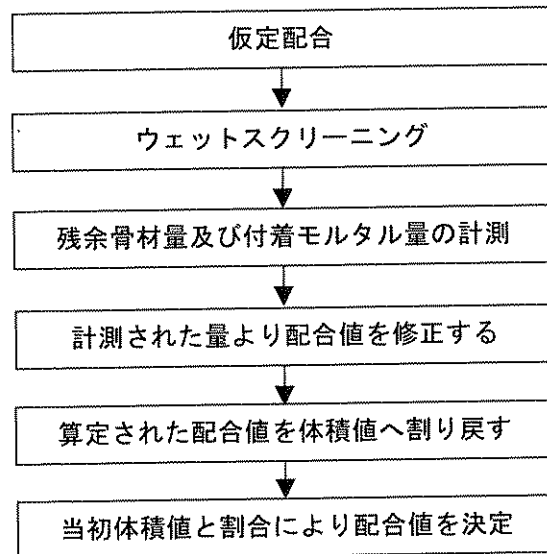 仮定配合
ウェットスクリーニング
残余骨材量及び付着モルタル量の計測
計測された量より配合値を修正する
算定された配合値を体積値へ割り戻す
当初体積値と割合により配合値を決定